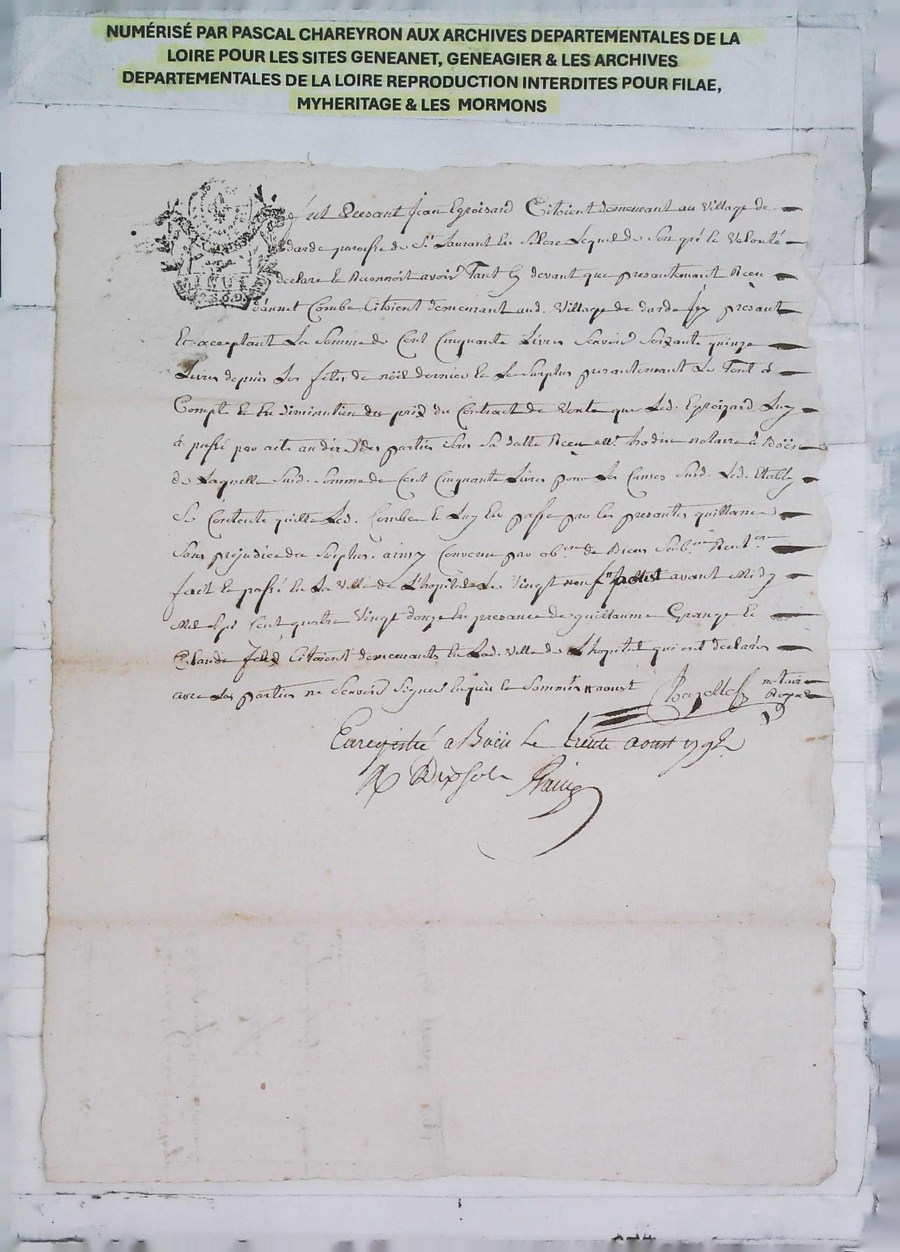 NUMÉRISÉ PAR PASCAL CHAREYRON AUX ARCHIVES DEPARTEMENTALES DE LA
LOIRE POUR LES SITES GENEANET, GENEAGIER & LES ARCHIVES
DEPARTEMENTALES DE LA LOIRE REPRODUCTION INTERDITES POUR FILAE,
MYHERITAGE & LES MORMONS
fut Presant Jean Epoisard Citoient demeurant au Village de
darde paroisse de St Laurant Lequel de Son gré et Volonté
declare et Reconnoit avoir Tant Cy devant que presantemant Receu
Combe Citoient demeurant aud. Village de darde Icy presant
Et acceptant La Somme de Cent Cinquante Livres Scavoir Soixante quinze
Livres depuis Les fetes de noël dernier et Le Surplus presantemant Le Tout à
Compte et En diminution du prix du Contract de Vente que Led. Epoizard Luy
à passé par acte au dire des parties Sous Sa datte Receu notaire à Boën
de Laquelle Susd. Somme de Cent Cinquante Livres pour Les Causes Susd. Led. Etably
Se Contente quitte Led. Combe et Luy En passe par Ces presantes quittance
Sans prejudice du Surplus. ainsy Convenu par de Biens
fait et passé En La Ville de L'hopital Le Vingt neuf avant Midy
Mil Sept Cent quatre Vingt douze En presance de guillaume Grange et
Claude Citoient demeurants En Lad. Ville de L'hopital qui ont declarés
avec Les parties ne Scavoir Signer Enquis et Sommés aoust
notaire
Royal
Enregistré a Boën le trente aoust 1792